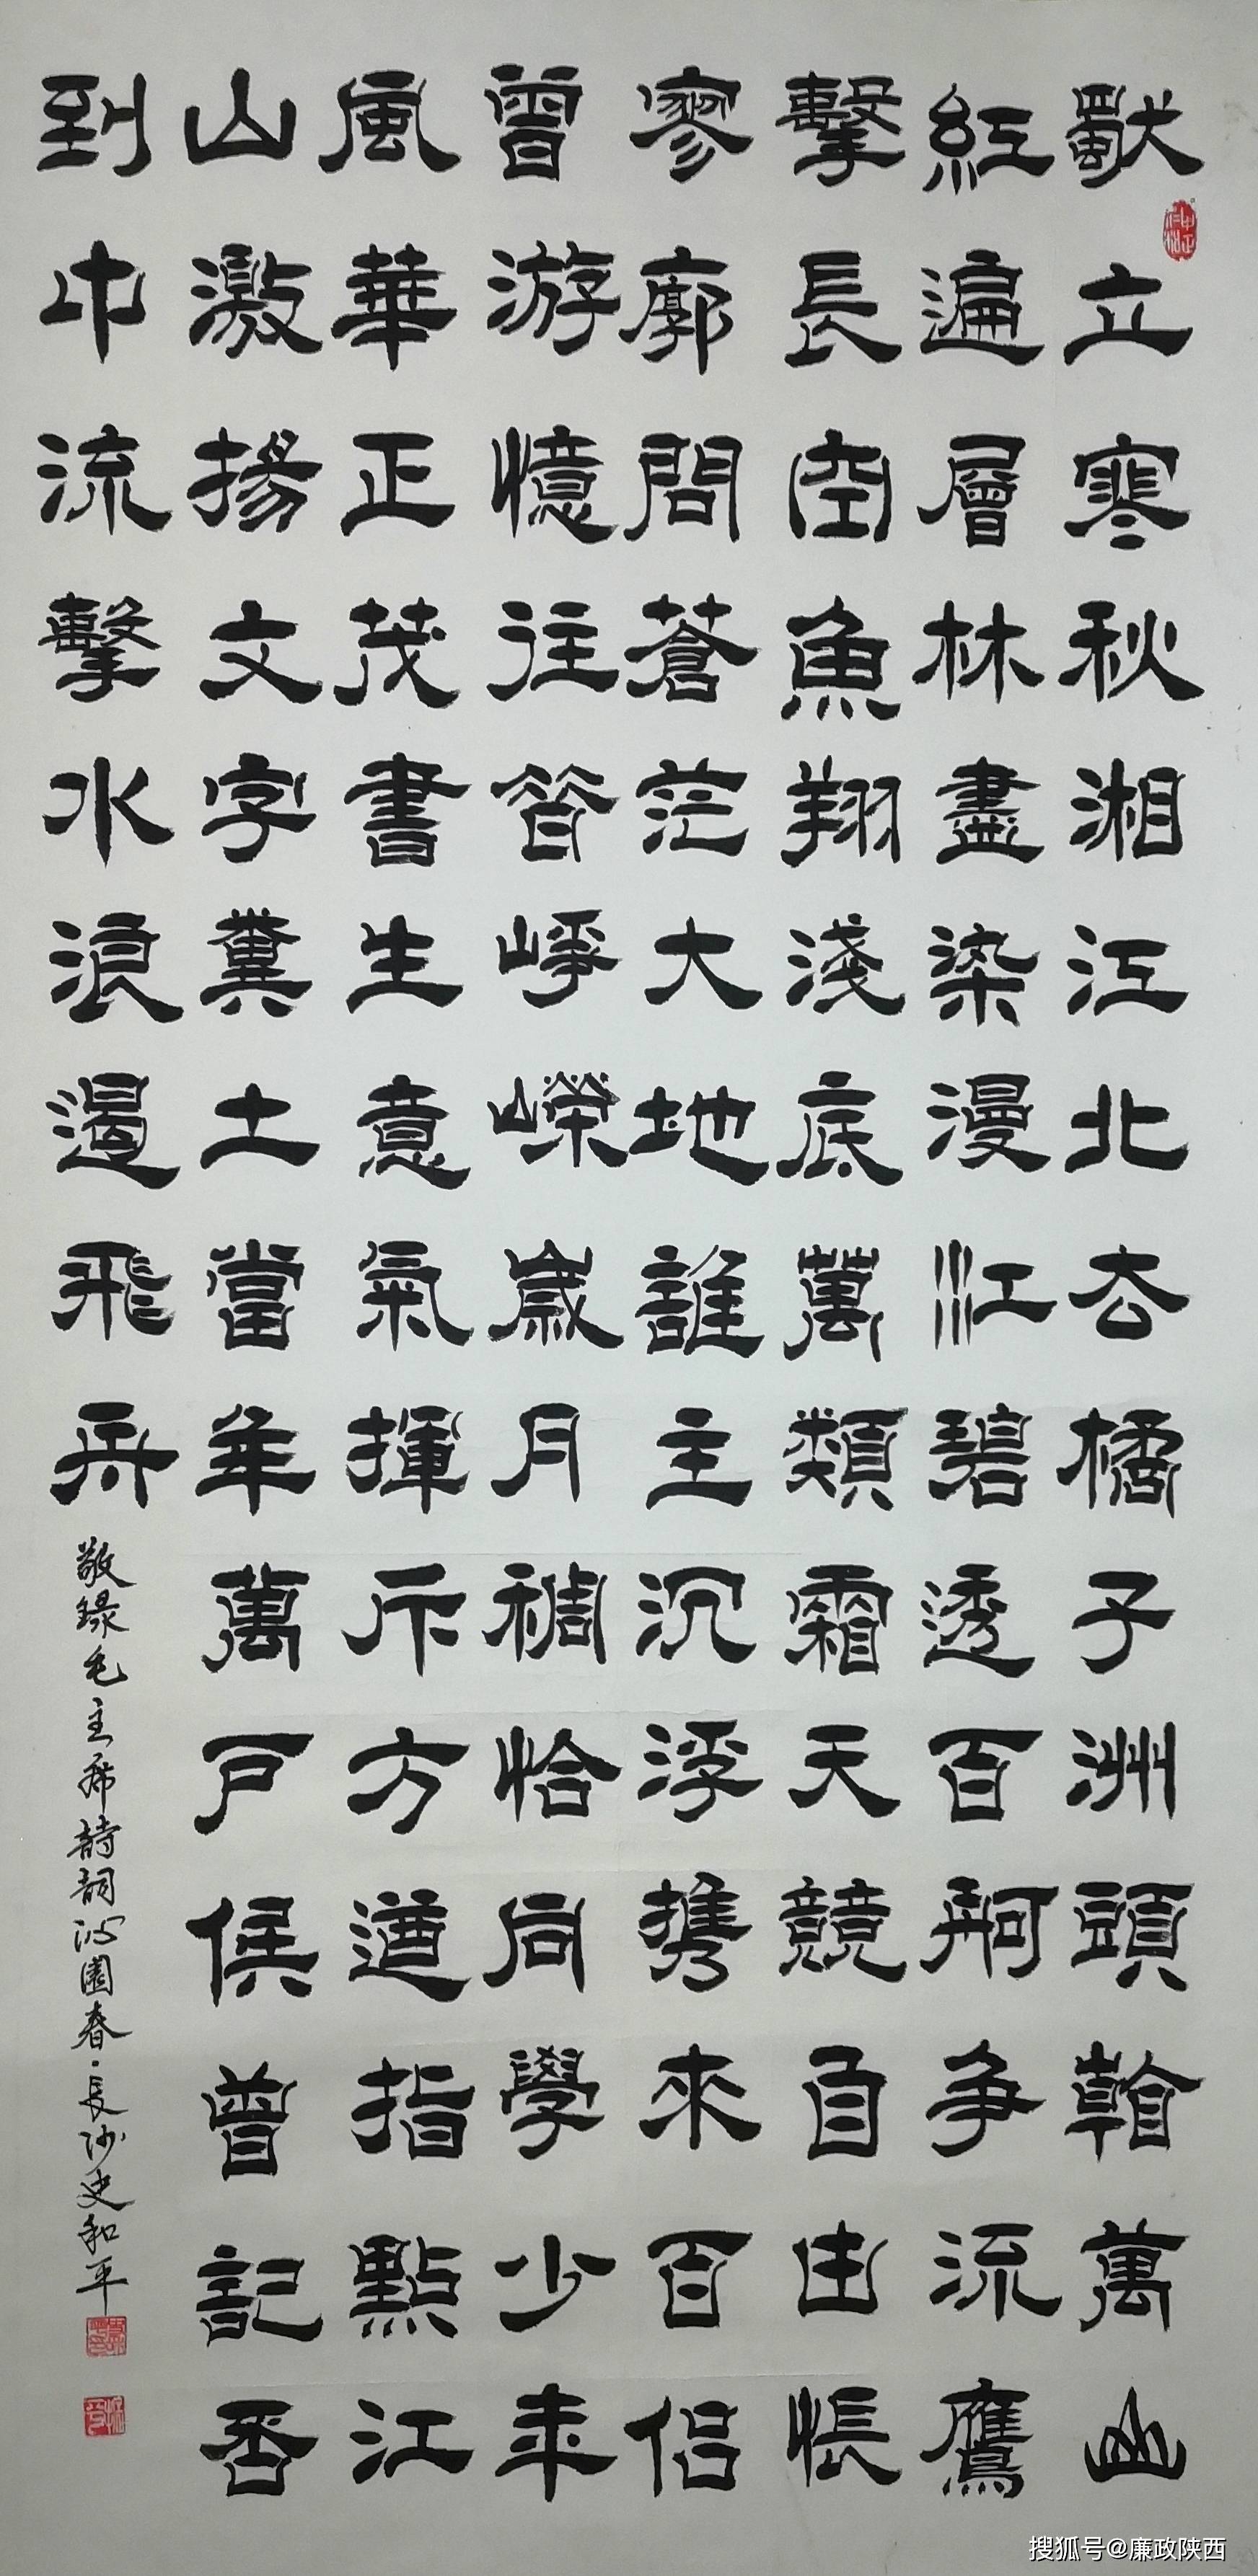 獨立寒秋湘江北去橘子洲頭看萬山
紅遍層林盡染漫江碧透百舸争流鷹
擊長空魚翔淺底萬類霜天競自由悵
寥廓問蒼茫大地誰主沉浮携來百侣
曾游憶往昔崢嶸歲月稠恰同學少年
風華正茂書生意氣揮斥方遒指點江
山激揚文字糞土當年萬戶侯曾記否
到中流擊水浪遏飛舟
敬録毛主席詩詞沁園春·長沙史和平
搜狐号@廉政陕西